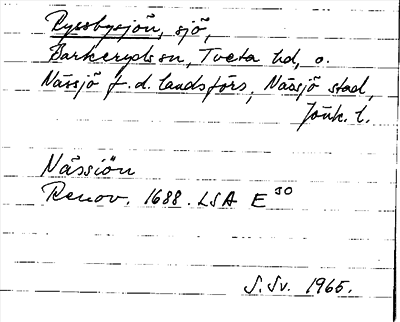 Ryssbysjön, sjö,
Barkeryds sn, Tveta hd, o.
Nässjö f.d. landsförs., Nässjö stad,
Jönk. l.
Nässiön
Renov. 1688. LSA E 30
S. Sv. 1965.